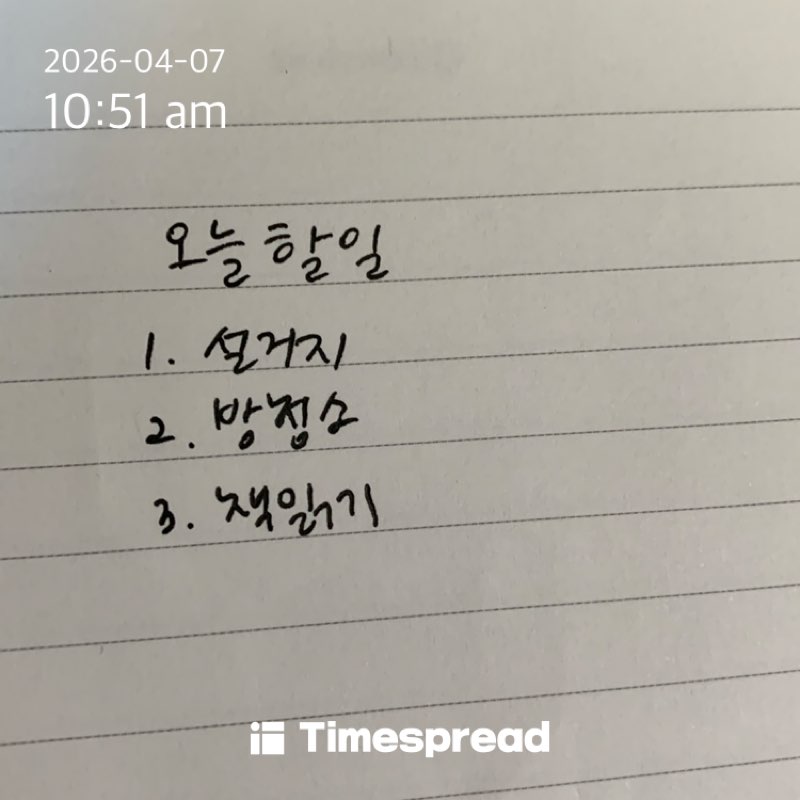 2026-04-07
10:51 am
오늘 할일
1. 설거지
2. 방청소
3. 책읽기
Timespread